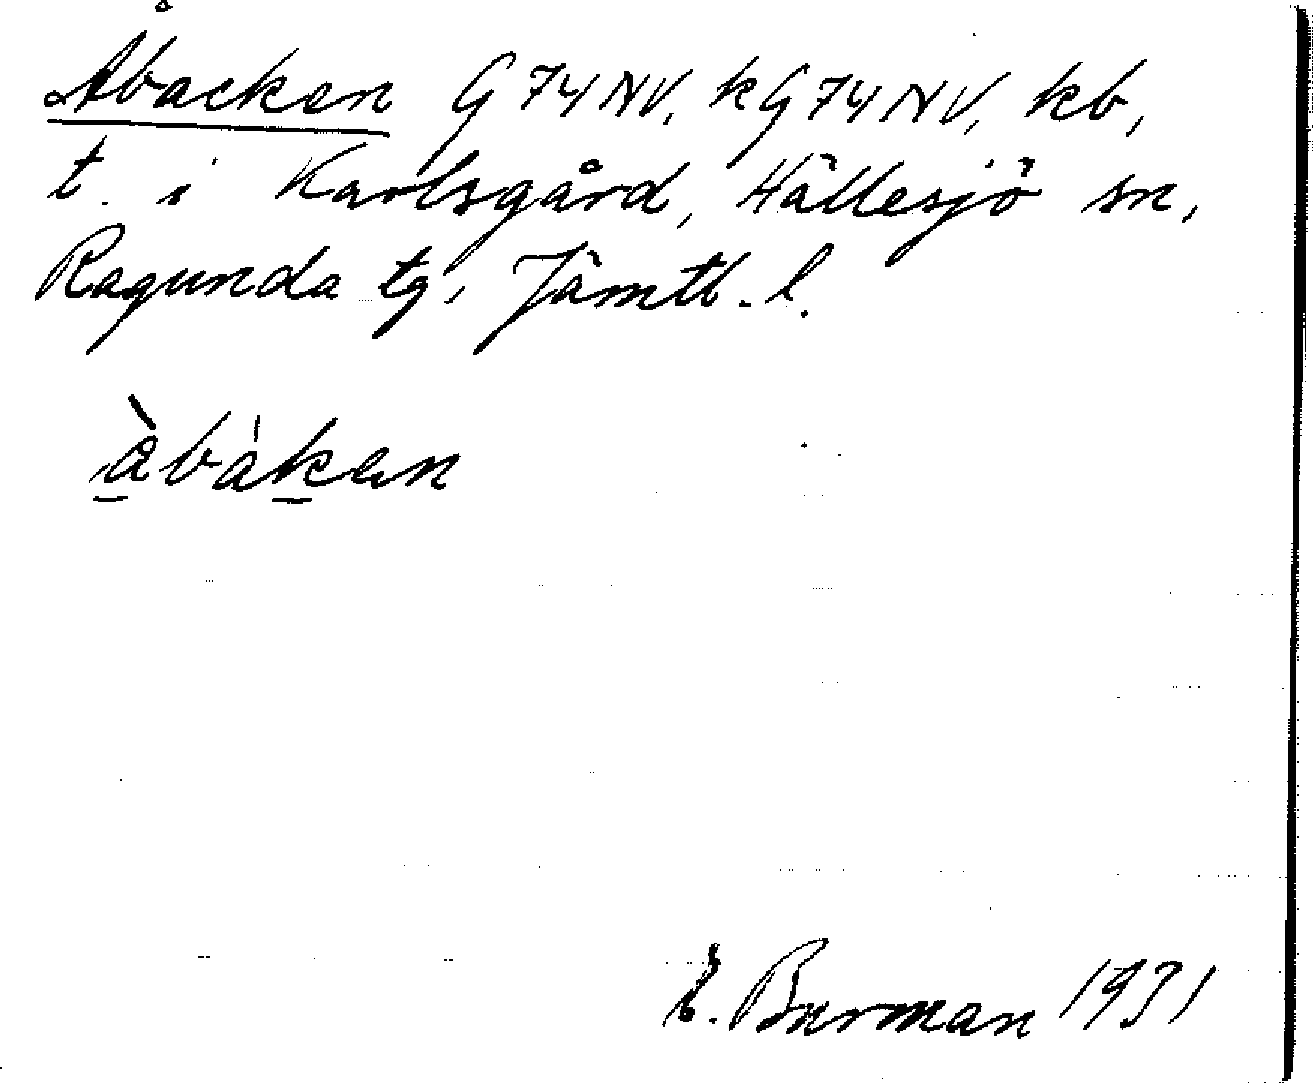 Åbacken G74NV, kG74NV, kb,
t. i Karlsgård, Hällesjö sn,
Ragunda tg, Jämtl. l.
åbàkan
E. Burman 1931